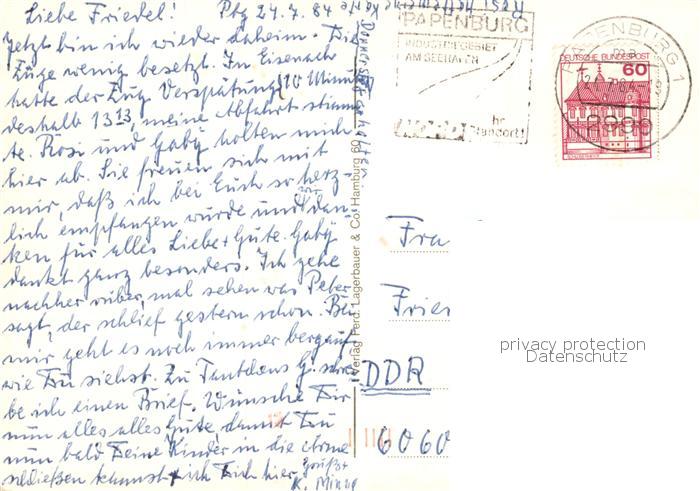 Liebe Friedel! Pbg 24.7.84
Jetzt bin ich wieder daheim. Die
Züge wenig besetzt. In Eisenach
hatte der Zug Verspätung (10 Minuten
deshalb 13 13, meine Abfahrt stimm
te. Rosi und Gaby holten mich
hier ab. Sie freuen sich mit
mir, daß ich bei Euch so herz-
lich empfangen wurde und dan-
ken für alles Liebe + Gute. Gaby
dankt ganz besonders. Ich gehe
nachher rüber, mal sehen was Peter
sagt, der schlief gestern schon. Bei
mir geht es noch immer bergauf
wie Du siehst. Zu Tantchens G. schrei
be ich einen Brief. Wünsche Dir
nun alles alles Gute damit Du
nun bald Deine Kinder in die Arme
schließen kannst. ich Dich hier
Gruß +
K.
Verlag Ferd. Lagerbauer & Co. Hamburg 60
PAPENBURG
INDUSTRIEGEBIET
AM SEEHAFEN
Ihr
Standort!
PAPENBURG 1
DEUTSCHE BUNDESPOST
60
2990
Fra
Frie
DDR
6060
privacy protection
Datenschutz